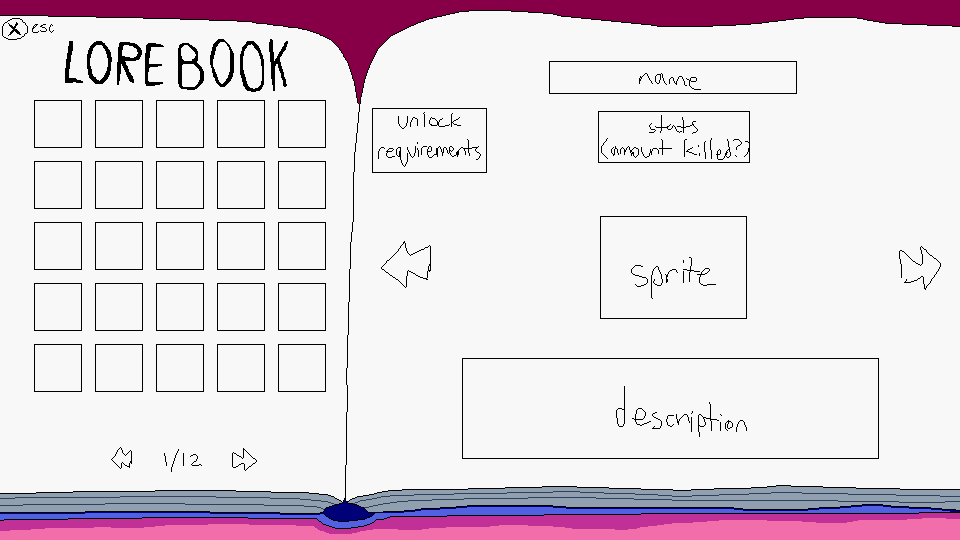 X esc
LORE BOOK
name
unlock
requirements
stats
(amount killed?)
sprite
description
1/12